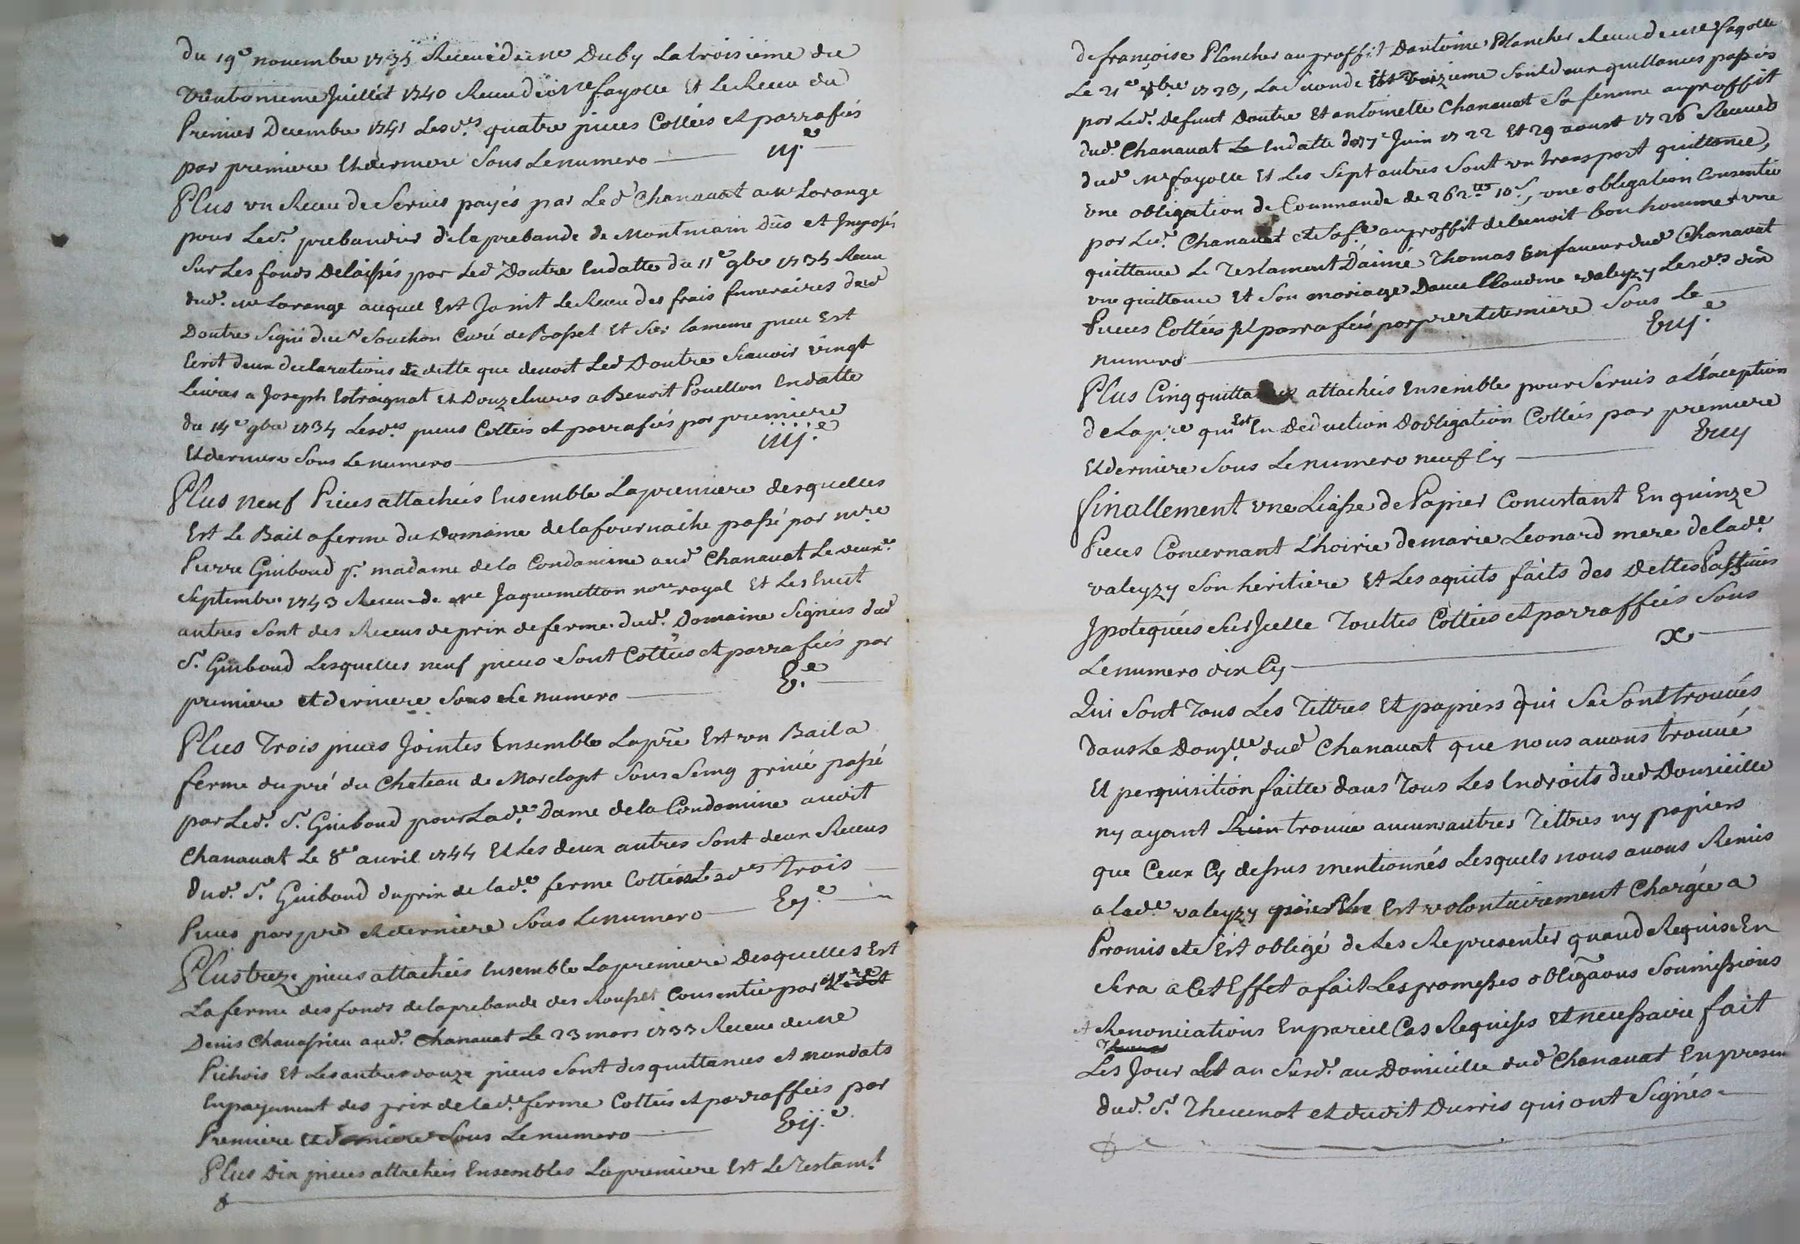 du 19e novembre 1735 Receue de me Duby La troisieme du
trentunieme Juillet 1740 Receu dud me fayolle Et Le Receu du
Premier Decembre 1741 Lesdes quatre pieces Cottées et parrafées
par premiere Et derniere Sous Le numero — iij.e
Plus un Receu de Servis payés par Led Chanavat a me Lorange
pour Led. prebandier de la prebande de Montmain Dus et Imposés
Sur Les fonds Delaissés par Led Doutre En datte du 11e 9bre 1735 Receu
dud. me Lorange auquel Est Joint Le Receu des frais funeraires dud
Doutre Signé du sr Souchon Curé de Et Sur la meme piece Est
Ecrit deux declarations de dette que devoit Led Doutre Scavoir vingt
Livres a Joseph Estraignat Et Douze livres a Benoit Pouillon En datte
du 14e 9bre 1734 Lesdes pieces Cottées et parrafées par premiere
Et derniere Sous Le numero — iiij.e
Plus neuf Pieces attachées Ensemble La premiere desquelles
Est Le Bail a ferme du Domaine de la fournache passé par mre
Pierre Guiboud pr. madame de la Condamine aud. Chanavat Le deuxe.
Septembre 1743 Receu de me Jaquemetton nore royal Et Les huit
autres Sont des Receus de prix de ferme dud. Domaine Signés dud
Sr. Guiboud Lesquelles neuf pieces Sont Cottées et parrafées par
premiere et derniere Sous Le numero — V.e
Plus Trois pieces Jointes Ensemble La pre Est un Bail a
ferme du pré du Chateau de Marclopt Sous Seing privé passé
par Led. Sr. Guiboud pour Lade. Dame de la Condamine audit
Chanavat Le 8e avril 1744 Et Les deux autres Sont deux Receus
dud. Sr. Guiboud du prix de lade. ferme Cottées Lesdes Trois
Pieces par pre et derniere Sous Le numero — Vj.e
Plus treze pieces attachées Ensemble La premiere Desquelles Est
La ferme des fonds de la prebande des Consentie par mre
Denis Chavassieu aud. Chanavat Le 23 mars 1733 Receue de me
Pichois Et Les autres douze pieces Sont des quittances et mandats
En payement des prix de lade. ferme Cottées et parraffées par
Premiere et derniere Sous Le numero — Vij.e
Plus Dix pieces attachées Ensembles La premiere Est Le Testamt
de françoise Plancher au proffit Dantoine Plancher Receu de me fayolle
Le 21e 9bre 1723, La Seconde Et Troizieme Sont deux quittances passées
par Led. Defunt Doutre Et antoinette Chanavat Sa femme au proffit
dud. Chanavat En datte des 7e Juin 1722 Et 29 aoust 1726 Receues
dud. me fayolle Et Les Sept autres Sont un transport quittance,
une obligation de Commande de 262 tt 10 s, une obligation Consentie
par Led. Chanavat et Sa fe. au proffit de benoit bonhomme une
quittance Le Testament Daimé Thomas En faveur dud Chanavat
une quittance Et Son mariage Davec Claudine valeyzy Lesdes dix
Pieces Cottées et parrafées par pre et derniere Sous Le
numero — Viij.e
Plus Cinq quittances attachées Ensemble pour Servis a L'exception
de La pre. qui Est En Deduction Dobligation Cottées par premiere
Et derniere Sous Le numero neuf Cy — Viiij
finallement une Liasse de Papier Concistant En quinze
Pieces Concernant L'hoirie de marie Leonard mere de lade.
valeyzy Son heritiere Et Les aquits faits des dettes Passives
Ipotequées Sur Icelle Touttes Cottées et parraffées Sous
Le numero dix Cy — x
Qui Sont Tous Les Tittres Et papiers qui Se Sont trouvés
dans Le Domlle. dud. Chanavat que nous avons trouvé
Et perquisition faitte dans Tous Les Endroits dud Domicille
ny ayant trouvé aucuns autres Tittres ny papiers
que Ceux Cy dessus mentionnés Lesquels nous avons Remis
a lade. valeyzy qui Est volontairement Chargée a
Promis et S'est obligé de Les Representer quand Requise En
Sera a Cet Effet a fait Les promesses obligaons Soumissions
et Renonciations En pareil Cas Requises Et necessaire fait
Les Jour et an Susd. au Domicille dud Chanavat En presence
dud. Sr. Thevenot et dudit Durris qui ont Signés.